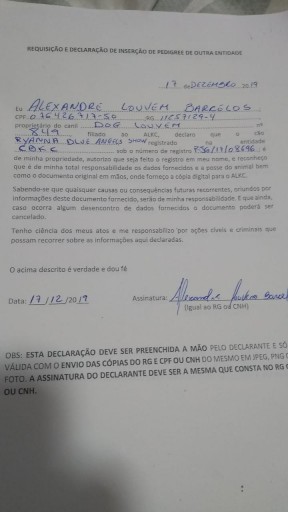 REQUISIÇÃO E DECLARAÇÃO DE INSERÇÃO DE PEDIGREE DE OUTRA ENTIDADE
17 DEZEMBRO 2019
Eu ALEXANDRE LOUVEM BARCELOS
CPF 07642671750 RG 11257129-4
proprietário do canil DOG LOUVEM nº
849 filiado ao ALKC, declaro que o cão
RYANNA BLUE ANGELS SHOW registrado na entidade
CBKC sob o número de registro
de minha propriedade, autorizo que seja feito o registro em meu nome, e reconheço
que é de minha total responsabilidade os dados fornecidos e a posse do animal bem
como o documento original em mãos, onde forneço a cópia digital para o ALKC.
Sabendo-se que quaisquer causas ou consequências futuras recorrentes, oriundos por
informações deste documento fornecido, serão de minha responsabilidade. E que ainda,
caso ocorra algum desencontro de dados fornecidos o documento poderá ser
cancelado.
Tenho ciência dos meus atos e me responsabilizo por ações cíveis e criminais que
possam recorrer sobre as informações aqui declaradas.
O acima descrito é verdade e dou fé
Data: 17/12/2019 Assinatura: Alexandre Barcel
(Igual ao RG ou CNH)
OBS: ESTA DECLARAÇÃO DEVE SER PREENCHIDA A MÃO PELO DECLARANTE E SÓ
VÁLIDA COM O ENVIO DAS CÓPIAS DO RG E CPF OU CNH DO MESMO EM JPEG, PNG O
FOTO. A ASSINATURA DO DECLARANTE DEVE SER A MESMA QUE CONSTA NO RG
OU CNH.